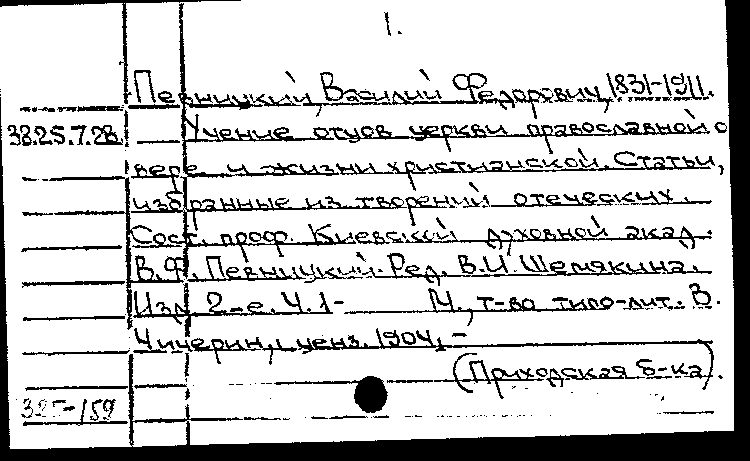 1.
Певницкий, Василий Федорович, 1831-1911.
38.25.7.28. Учение отцов церкви православной о
вере и жизни христианской. Статьи,
избранные из творений отеческих.
Сост. проф. Киевской духовной акад.
В.Ф. Певницкий. Ред. В.И. Шемякина.
Изд. 2-е. Ч. 1- М., т-во типо-лит. В.
Чичерин, ценз. 1904, -
(Приходская б-ка).
325-159